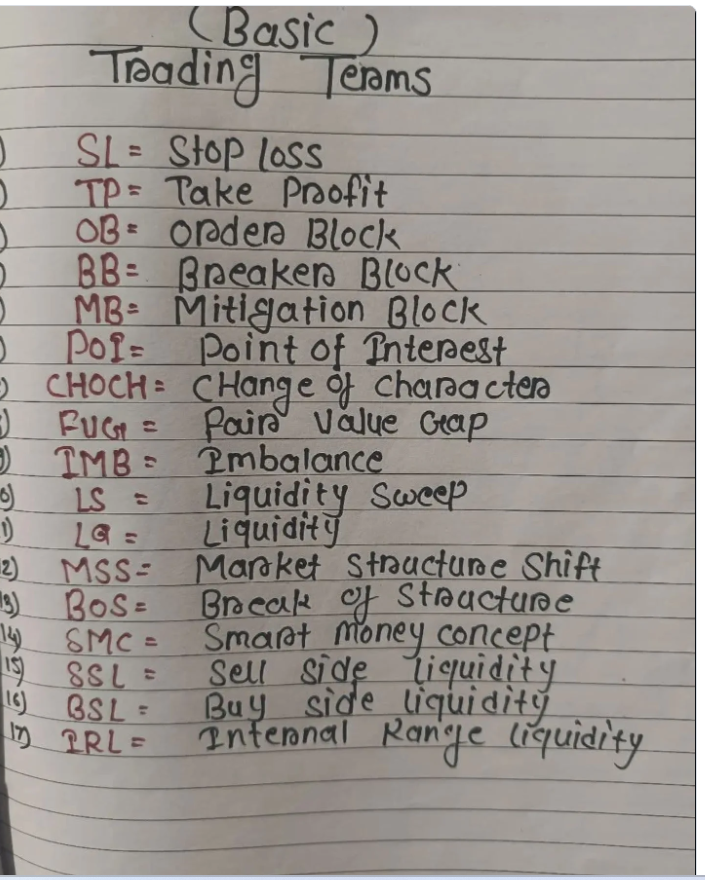 (Basic)
Trading Terms
SL = Stop loss
TP = Take Profit
OB = Order Block
BB = Breaker Block
MB = Mitigation Block
POI = Point of Interest
CHOCH = CHange of character
FVG = Fair Value Gap
IMB = Imbalance
LS = Liquidity Sweep
LQ = Liquidity
12) MSS = Market Structure Shift
13) BOS = Break of Structure
14) SMC = Smart money concept
15) SSL = Sell side liquidity
16) BSL = Buy side liquidity
17) IRL = Internal Range liquidity